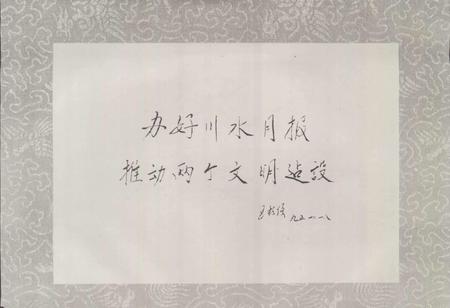 办好川水月报
推动两个文明建设
九五.一.八